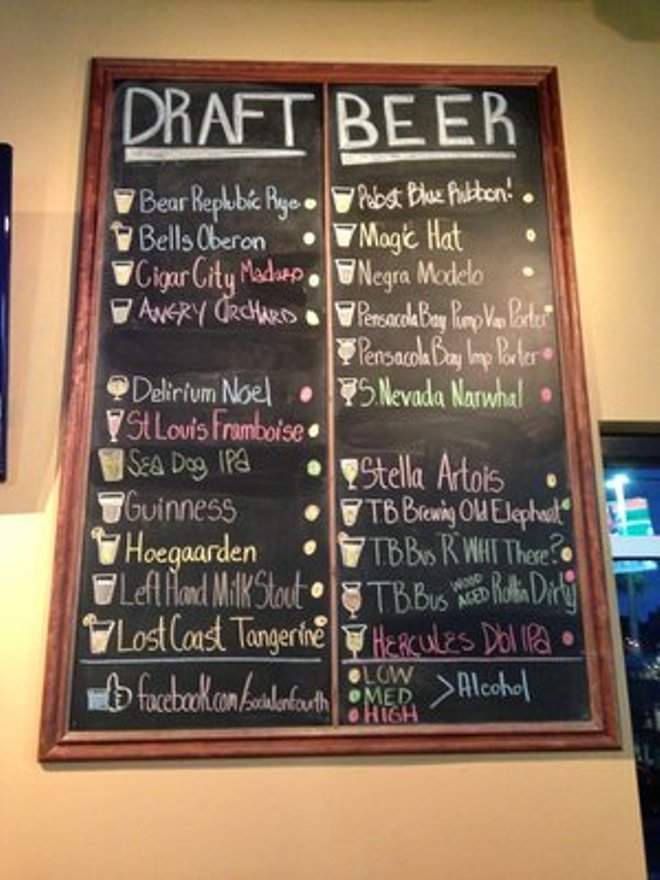 DRAFT BEER
Bear Replubic Rye
Bells Oberon
Cigar City Maduro
ANGRY ORCHARD
Delirium Noel
St Louis Framboise
Sea Dog IPA
Guinness
Hoegaarden
Left Hand Milk Stout
Lost Coast Tangerine
facebook.com/socialonfourth
Pabst Blue Ribbon!
Magic Hat
Negra Modelo
Pensacola Bay Pump Van Porter
Pensacola Bay Imp Porter
S. Nevada Narwhal
Stella Artois
T.B Brewing Old Elephant
T.B.Bus "R" WHT There?
T.B.Bus WOOD AGED Rollin Dirty
HERCULES Dbl IPA
LOW
MED > Alcohol
HIGH